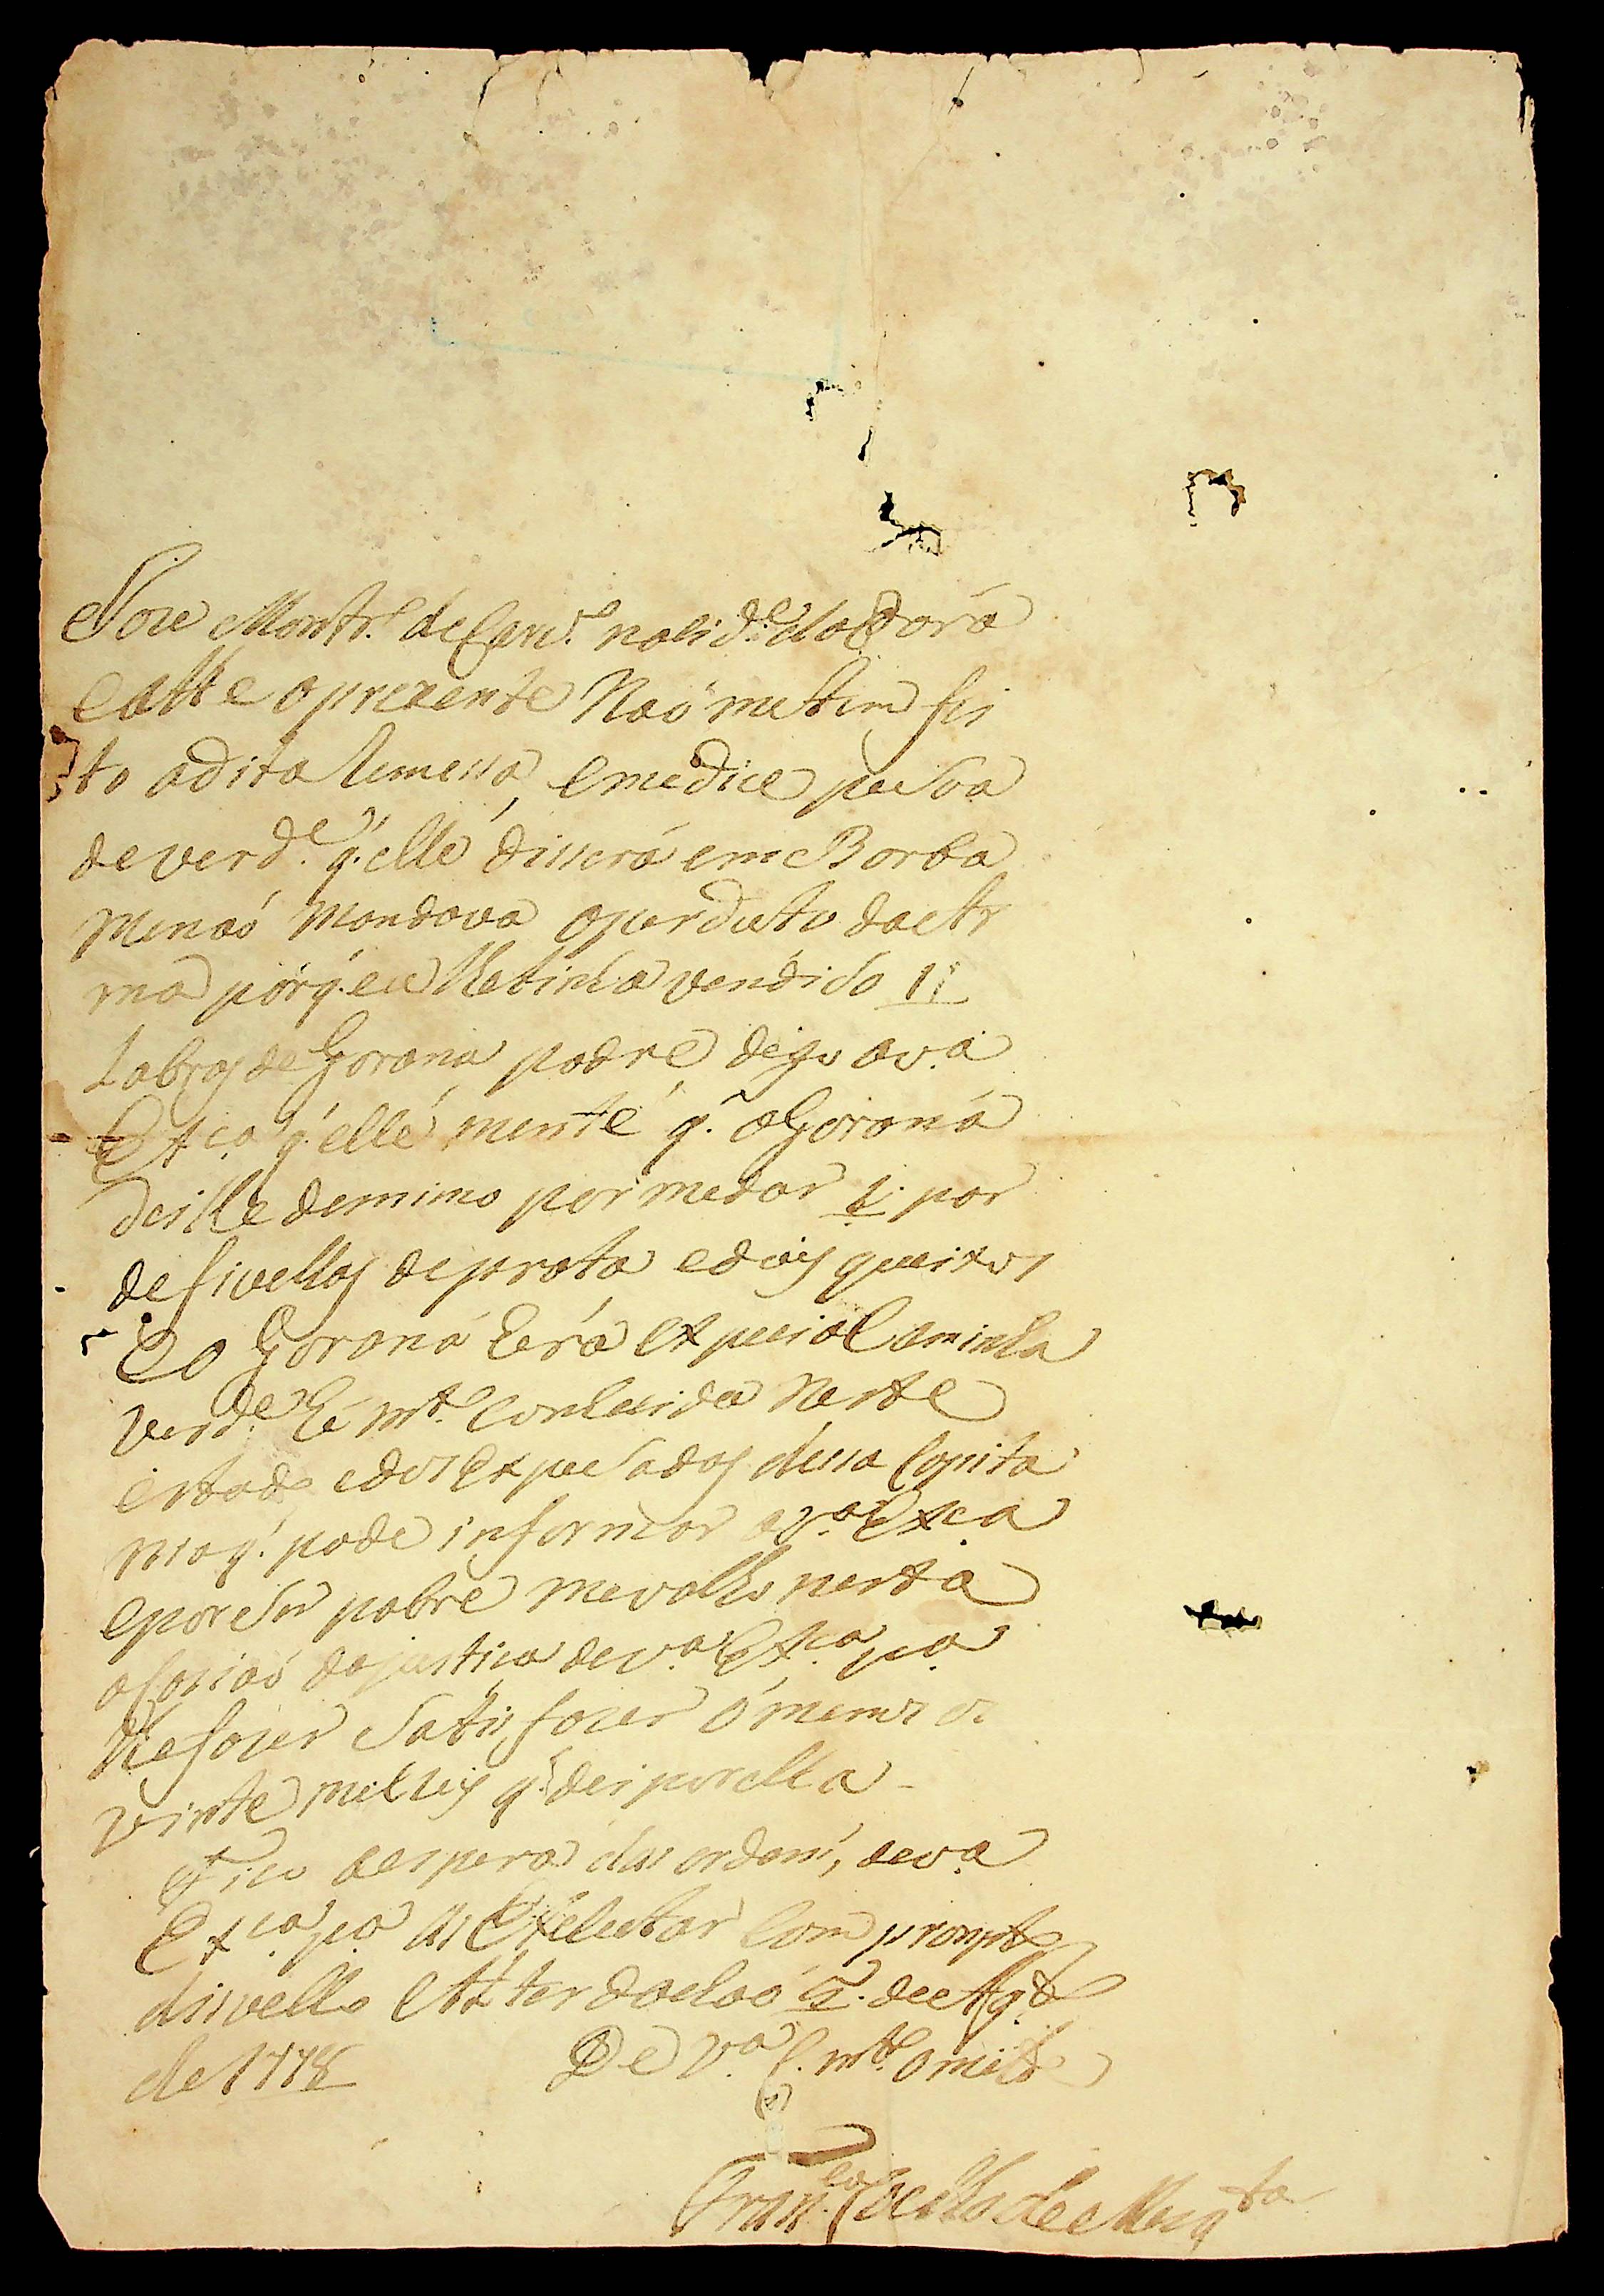 Joze Montr.º de Carv.º na cid.e do Pará
e athe o prezente Naó me tem fei
to a dita Remessa, e me dice pesoa
de verd.e q. elle disserá em Borba
me naó mandava o perduto da etr
ma porq. eu lhe tinha vendido 11
Libras de Goraná podre digo a V.ª
Ex.cª q. elle mente q. o Goraná
dei lhe de mimo por me dar 1. par
de fivellas de prata e dois queixos
e o Goraná hera expecial a minha
verd.e hé mt.º conhecida Neste
estado e dos expeSados dessa Capita
nia q. pode informar a V.ª Ex.cª
e por Ser pobre me valho nesta
ocaziaó da justica de V.ª Ex.cª p.ª
lhe fazer Satisfazer ó menos os
vinte mil reis q. dei por ella
Fico a espera das ordens, de V.ª
Ex.cª p.ª as Executar Com prompto
disvello 5. de Ag.to
de 1778 De V.ª C. mt.º
Fran.co Coelho de Mesq.ta